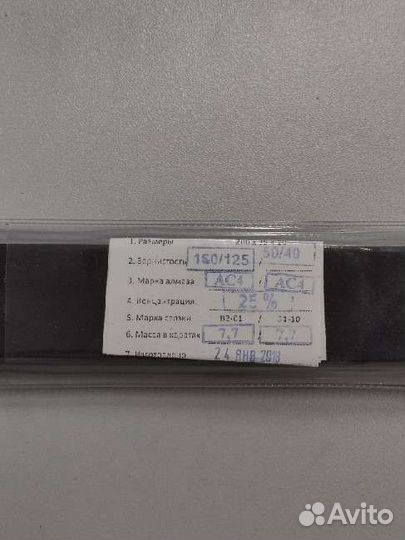 1. Размеры
2. Зернистость 160/125 50/40
3. Марка алмаза АС4 / АС4
4. Концентрация 25 %
5. Марка связки В2-01 /
6. Масса в каратах 7,7 / 7,7
24 ЯНВ 2018
Avito